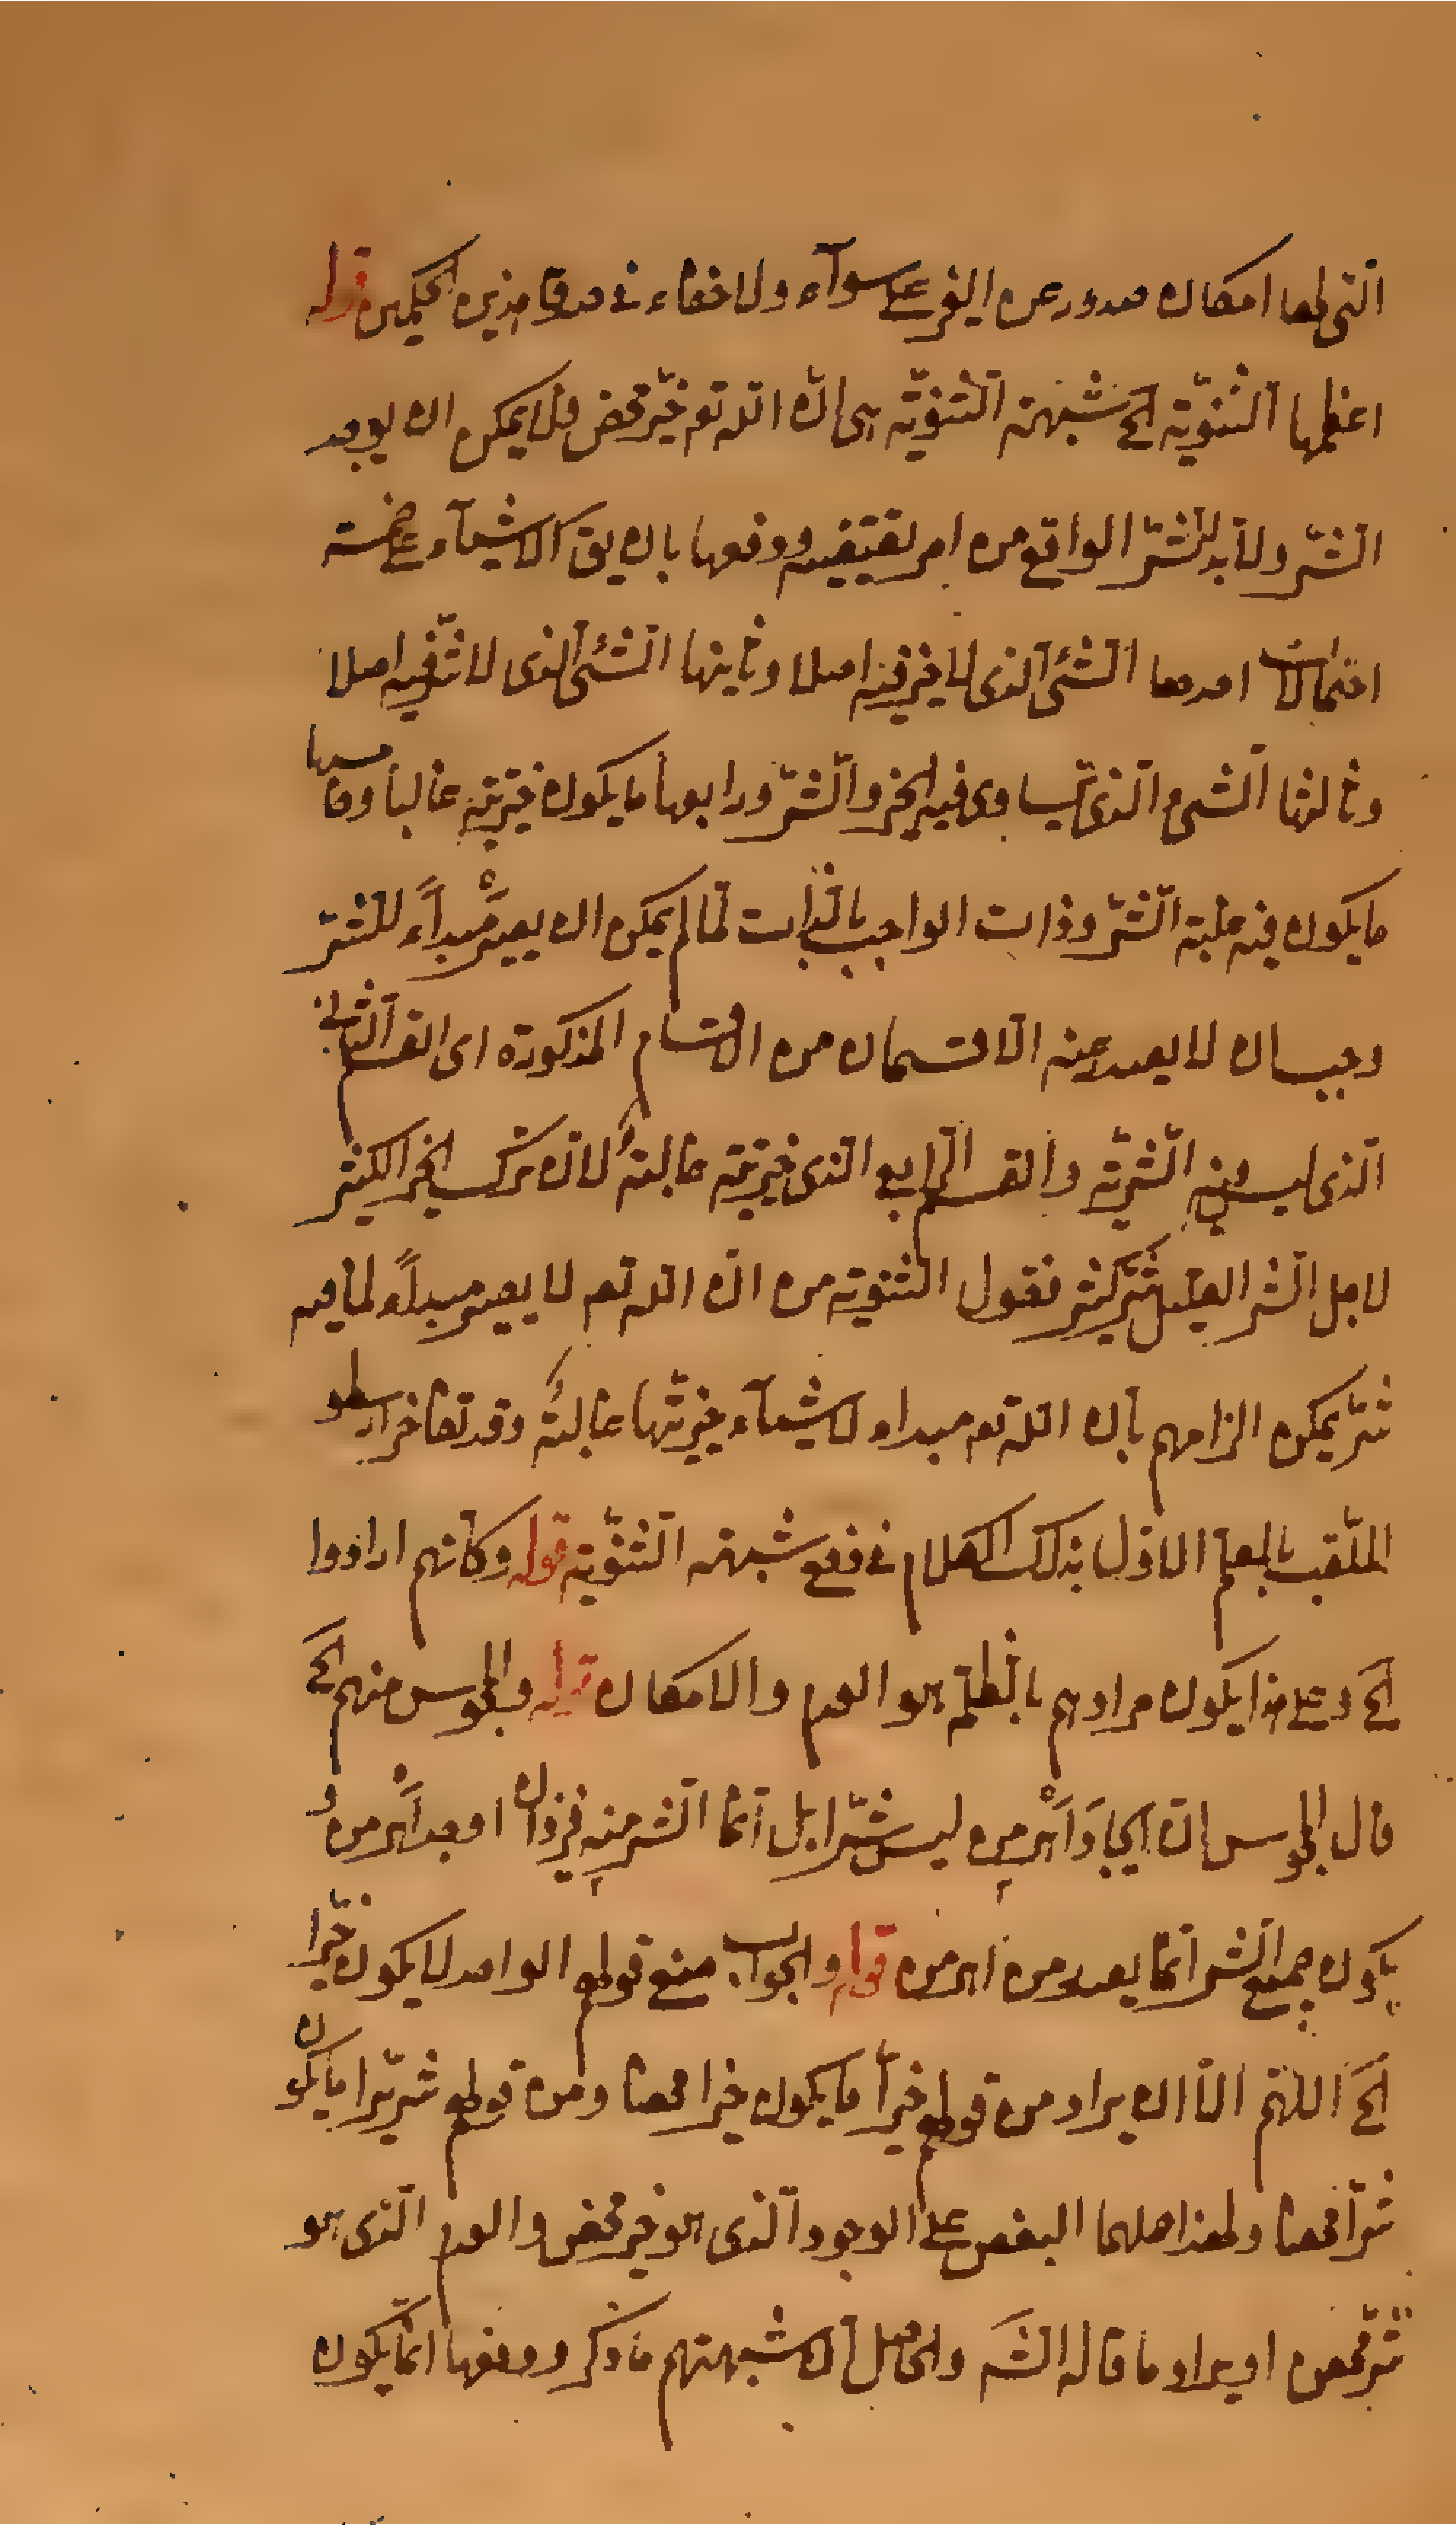 التى لها امكان صدور عن الغير على سوآء ولا خفاء فى صدق هذين الحكمين قوله
اعظمها الثنويّة الخ شبهة الثنويّة هى انّ الله تع خيّر محض فلا يمكن ان يوجد
الشرّ ولا بد للشرّ الواقع من امر يقتضيه ودفعها بان يق الاشيآء على خمسة
احتمالات احدها الشئ الذى لا خير فيه اصلا وثانيها الشئ الذى لا شرّ فيه اصلا
وثالثها الشئ الذى يتساوى فيه الخير والشرّ ورابعها ما يكون خيريّته غالبا وخامسها
ما يكون فيه غلبة الشرّ وذات الواجب بالذات لما لم يمكن ان يصير مبدأ للشرّ
وجب ان لا يصدر عنه الا قسمان من الاقسام المذكورة اى القسم الثانى
الذى ليس فيه الشريّة والقسم الرابع الذى خيريّته غالبة لانّ ترك الخير الكثير
لاجل الشر القليل شرّ كثير فقول الثنوية من انّ الله تع لا يصير مبدأ لما فيه
شرّ يمكن الزامهم بانّ الله تع مبداء لاشيآء خيريّتها غالبة وقد تفاخر ارسطو
الملقّب بالمعلم الاوّل بذلك الكلام فى دفع شبهة الثنويّة قوله وكانّهم ارادوا
الخ وعلى هذا يكون مرادهم بالظلمة هو العدم والامكان قوله والمجوس منهم الخ
قال المجوس انّ ايجاد اهرمن ليس شرّا بل انّما الشر منه فيزدان اوجد اهرمن و
يكون جميع الشر انّما يصدر من اهرمن قوله والجواب منع قولهم الواحد لا يكون خيّرا
الخ اللهمّ الّا ان يراد من قولهم خيّراً ما يكون خيرا محضا ومن قولهم شرّيرا ما يكون
شرّا محضا ولهذا حملهما البعض على الوجود الذى هو خير محض والعدم الذى هو
شرّ محض او يراد ما قاله الشه والحاصل انّ شبهتهم ما ذكر ودفعها انّما يكون